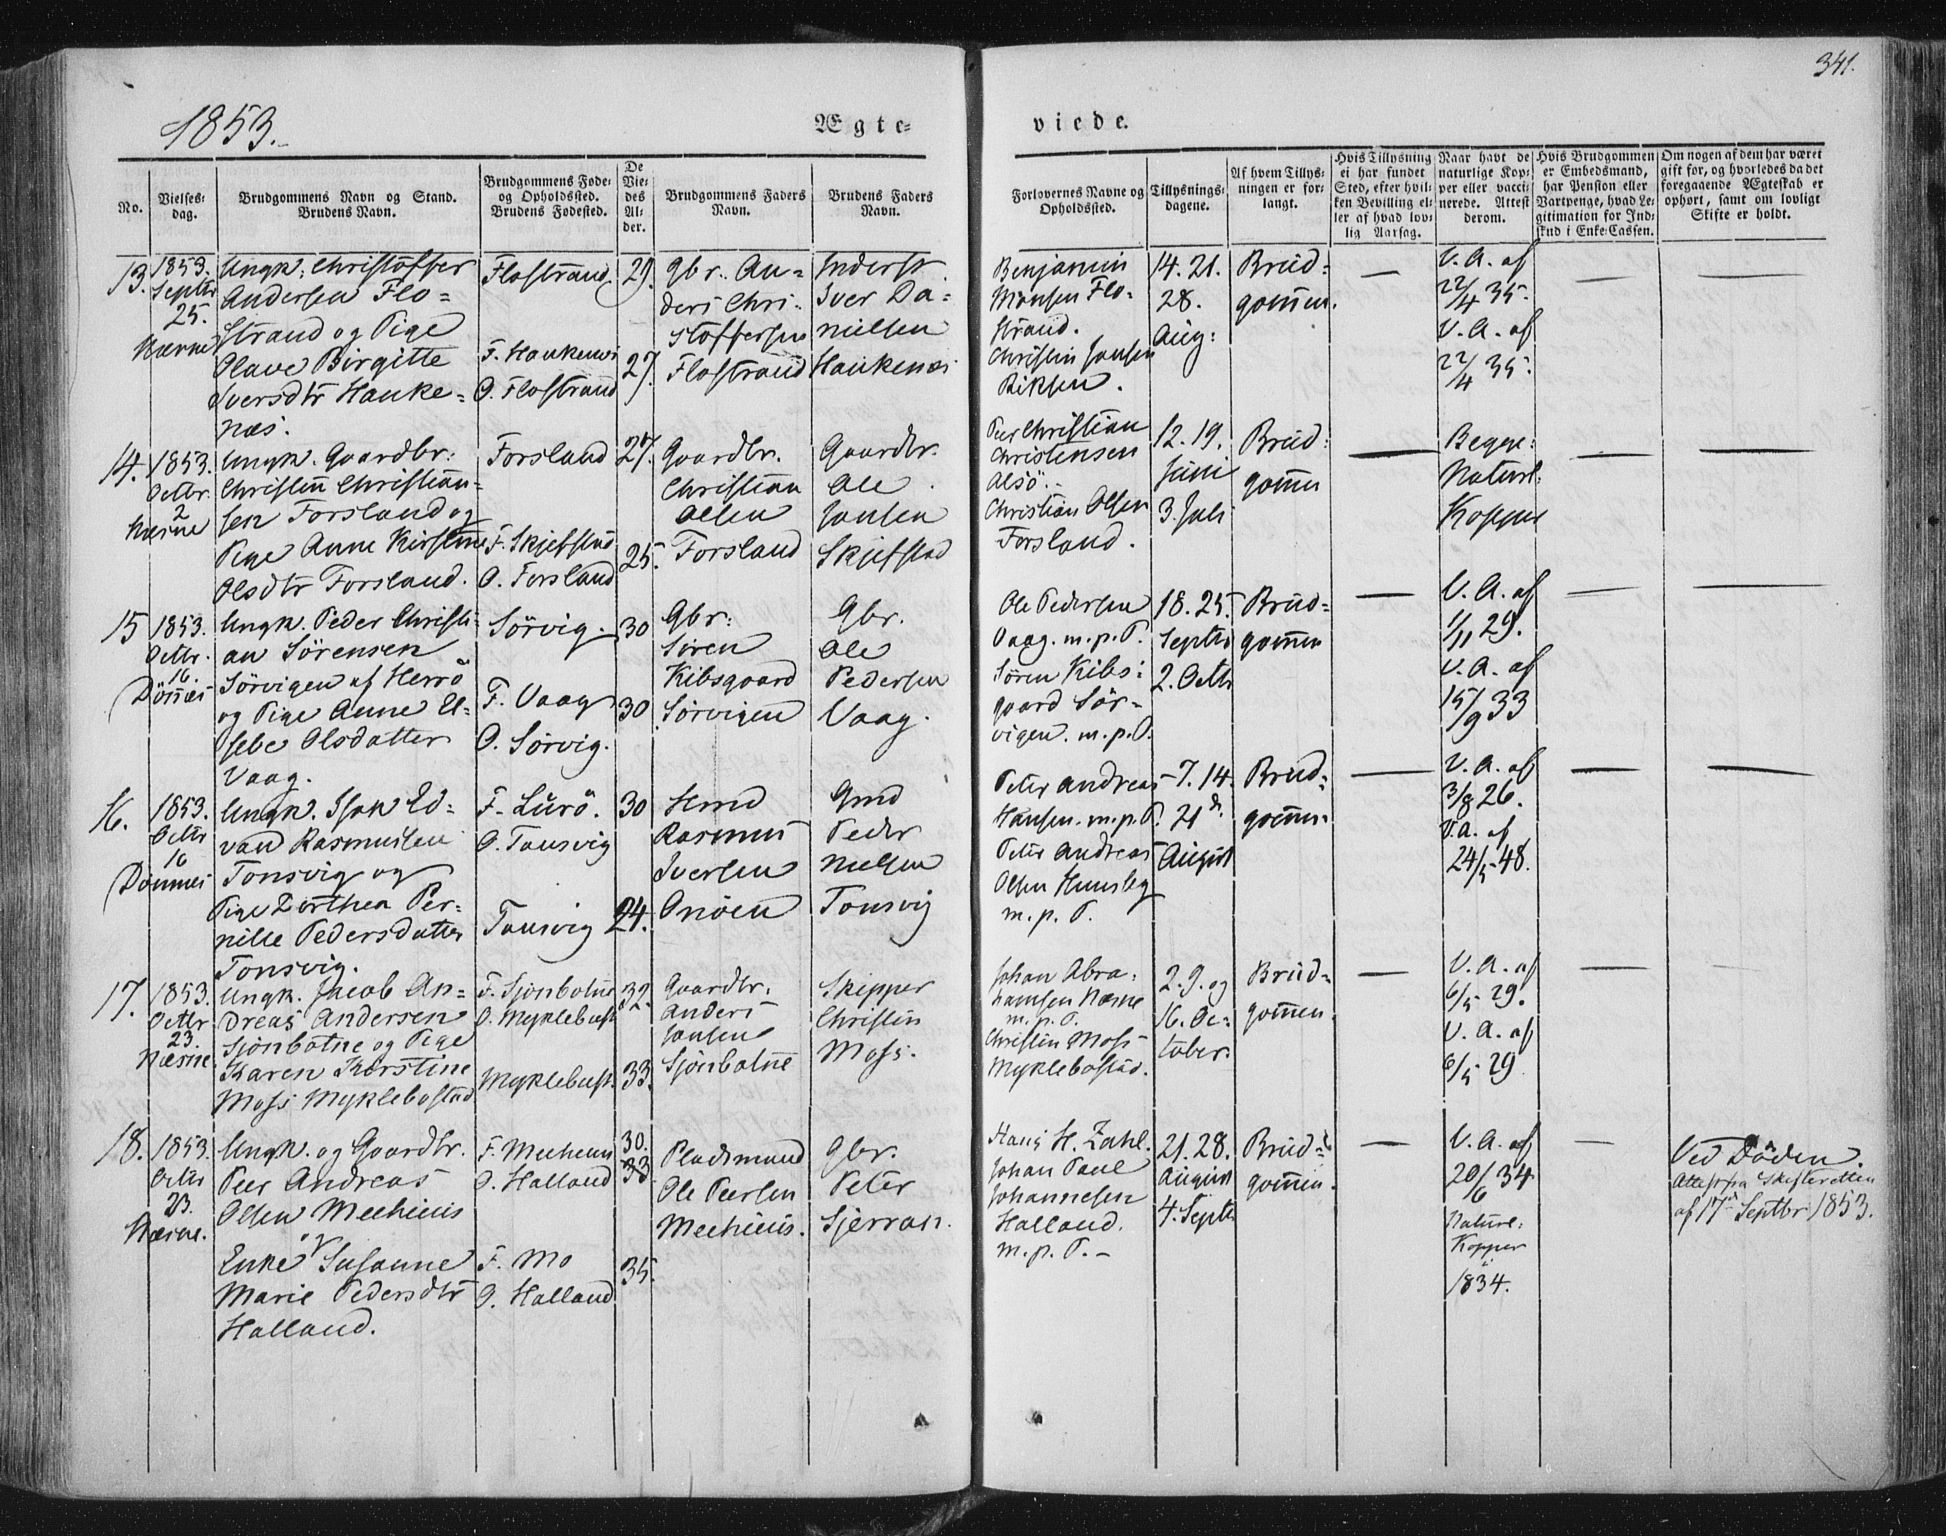 341.
1853.
Ægte=
viede.
No.
Vielses=
dag.
Brudgommens Navn og Stand.
Brudens Navn.
Brudgommens Føde=
og Opholdssted.
Brudens Fødested.
De
Vie=
des
Al=
der.
Brudgommens Faders
Navn.
Brudens Faders
Navn.
Forlovernes Navne og
Opholdssted.
Tillysnings=
dagene.
Af hvem Tillys=
ningen er for=
langt.
Hvis Tillysning
ei har fundet
Sted, efter hvil=
ken Bevilling el=
ler af hvad lov=
lig Aarsag.
Naar havt de
naturlige Kop=
per eller vacci=
nerede. Attest
derom.
Hvis Brudgommen
er Embedsmand,
har Pension eller
Vartpenge, hvad Le=
gitimation for Ind=
skud i Enke=Cassen.
Om nogen af dem har været
gift for, og hvorledes da det
foregaaende Ægteskab er
ophørt, samt om lovligt
Skifte er holdt.
13.
1853.
Septbr
25.
Næsne
Ungk. Christoffer
Andersen Flo=
strand og Pige
Olave Birgitte
Iversdtr Hauke=
næs.
Flostrand
F. Haukenæs
O. Flostrand
29.
27.
Gbr. An=
ders Chri=
stoffersen
Flostrand
Inderst
Iver Da=
nielsen
Haukenæs
Benjamin
Monsen Flo=
strand.
Christen Jansen
14. 21.
28.
Aug:
Brud=
gommen.
—
V. A. af
22/4 35.
V. A. af
22/4 35.
—
14.
1853.
Octbr.
2
Næsne
Ungk. Gaardbr.
Christen Christian=
sen Forsland og
Pige Anne Kirstine
Olsdtr Forsland.
Forsland
F. Skjefstad
O. Forsland
27.
25.
Gaardbr.
Christian
Olsen
Forsland
Gaardbr.
Ole
Jansen
Skjefstad
Peer Christian
Christensen
Alsö.
Christian Olsen
Forsland.
12. 19.
Juni
3. Juli
Brud=
gommen
—
Begge
Naturl:
Kopper
—
—
15
1853.
Octbr.
16.
Dönnæs
Ungk. Peder Christi=
an Sörensen
Sörvigen af Herrö
og Pige Anne El=
sebe Olsdatter
Vaag.
Sörvig.
F. Vaag
O. Sörvig.
30
30
Gbr:
Sören
Kibsgaard
Sörvigen
Gbr.
Ole
Pedersen
Vaag.
Ole Pedersen
Vaag. m. p. P.
Sören Kibs=
gaard Sör=
vigen. m. p. P.
18. 25.
Septbr
2. Octbr
Brud=
gommen
—
V. A. af
1/11 29.
V. A. af
15/9 33
—
—
16.
1853.
Octbr
16
Dönnæs
Ungk. Isak Ed=
vard Rasmussen
Tonsvig og
Pige Dorthea Per=
nille Pedersdatter
Tonsvig.
F. Lurö.
O. Tonsvig
Tonsvig
30
24.
Hmd
Rasmus
Iversen
Onöen
Gmd
Peder
Nielsen
Tonsvig
Peter Andreas
Hansen. m. p. P.
Peter Andreas
Olsen
m. p. P.
7. 14.
21de
August
Brud=
gommen
—
V. A. af
3/8 26.
V. A. af
24/5 48.
—
—
17.
1853.
Octbr
23.
Næsne.
Ungk. Jacob An=
dreas Andersen
Sjonbotne og Pige
Karen Kirstine
Moss Myklebostad
F. Sjonbotne
O. Myklebust
Myklebust.
32.
33.
Gaardbr.
Anders
Jansen
Sjonbotne
Skipper
Christen
Moss.
Johan Abra=
hamsen Næsne
m. p. P.
Christen Moss
Myklebostad.
2. 9. og
16. Oc=
tober.
Brud=
gommen.
—
V. A. af
6/5 29.
V. A. af
6/5 29.
—
—
18.
1853.
Octbr
23.
Næsne.
Ungk. og Gaardbr.
Peer Andreas
Olsen Mechiuis
Enke Susanne
Marie Pedersdtr
Halland.
F. Mechiuis
O. Halland
F. Mo
O. Halland
30.
33
35.
Pladsmand
Ole Peersen
Mechiuis.
Gbr.
Peter
Sjerran.
Hans H. Zahl.
Johan Paul
Johannesen
Halland.
m. p. P.
21. 28.
August
4. Septbr
Brud=
gommen.
—
V. A. af
20/6 34.
Naturl.
Kopper
i
1834.
—
Ved Döden.
Attest fra Skifteretten
af 17de Septbr 1853.